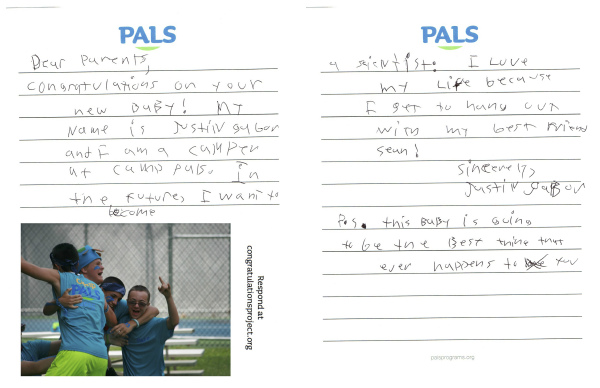 PALS
Dear Parents,
congratulations on your
new baby! My
name is Justin Gabor
and I am a camper
at camp pals. In
the future, I want to
become
Respond at
congratulationsproject.org
PALS
a scientist. I Love
my Life because
I get to hang out
with my best friend
sean!
sincerely,
Justin Gabor
P.s. this baby is going
to be the best thing that
ever happens to you
palsprograms.org